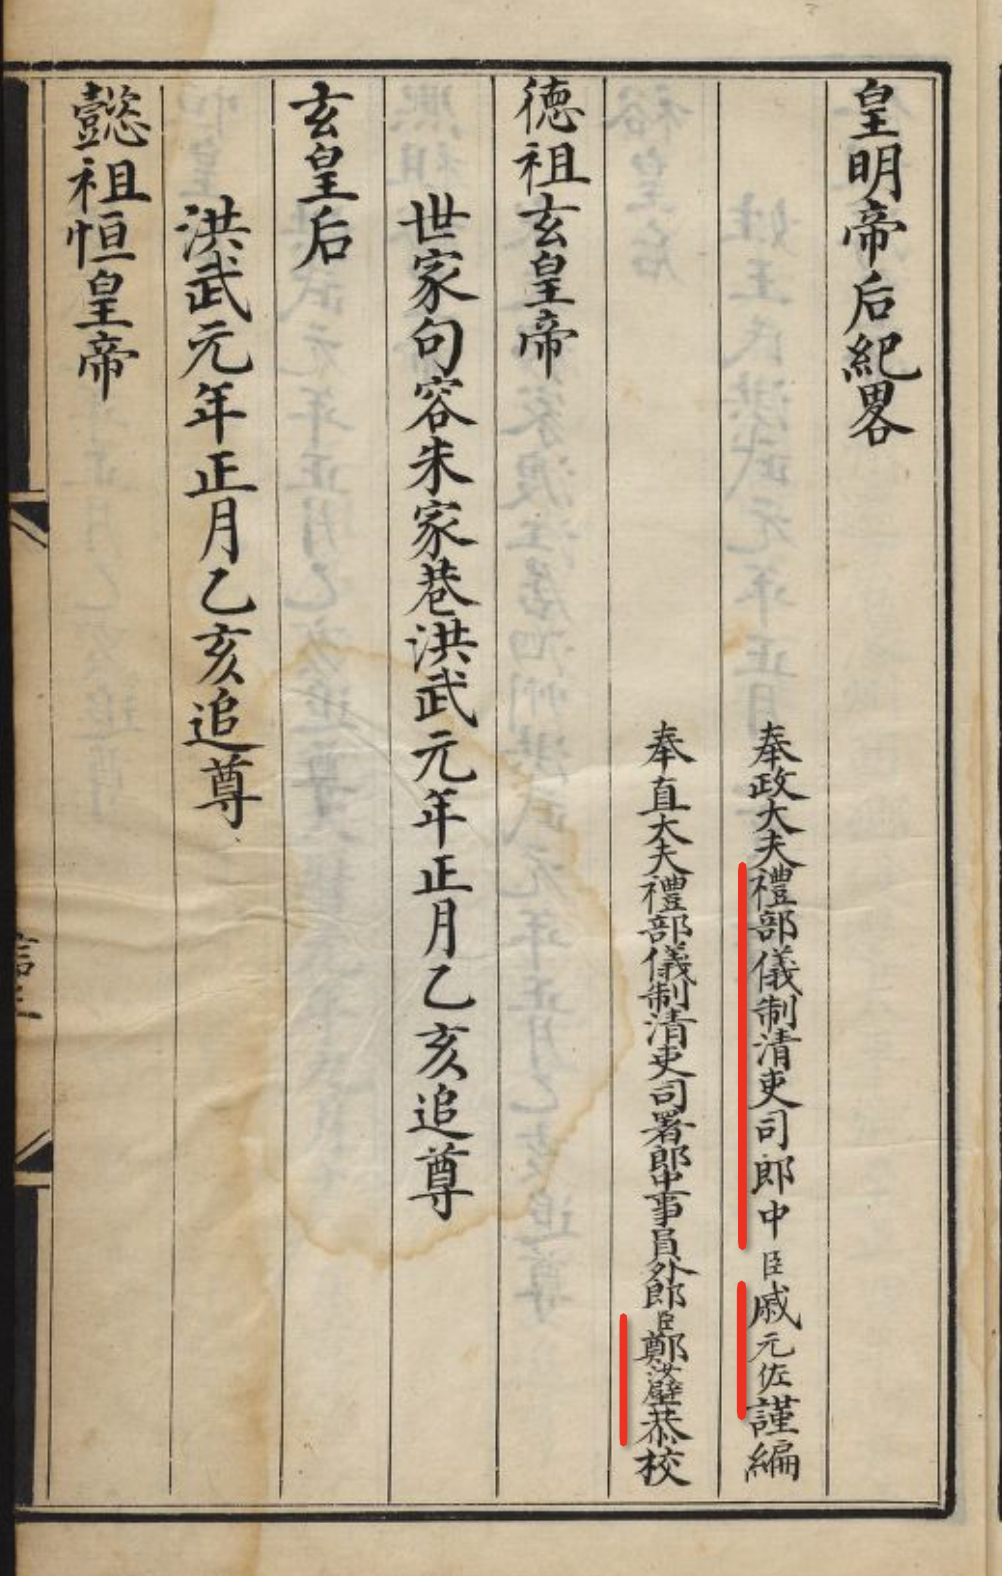 皇明帝后紀畧
奉政大夫禮部儀制清吏司郎中臣戚元佐謹編
奉直大夫禮部儀制清吏司署郎中事員外郎臣鄭汝璧恭校
德祖玄皇帝
世家句容朱家巷洪武元年正月乙亥追尊
玄皇后
洪武元年正月乙亥追尊
懿祖恒皇帝